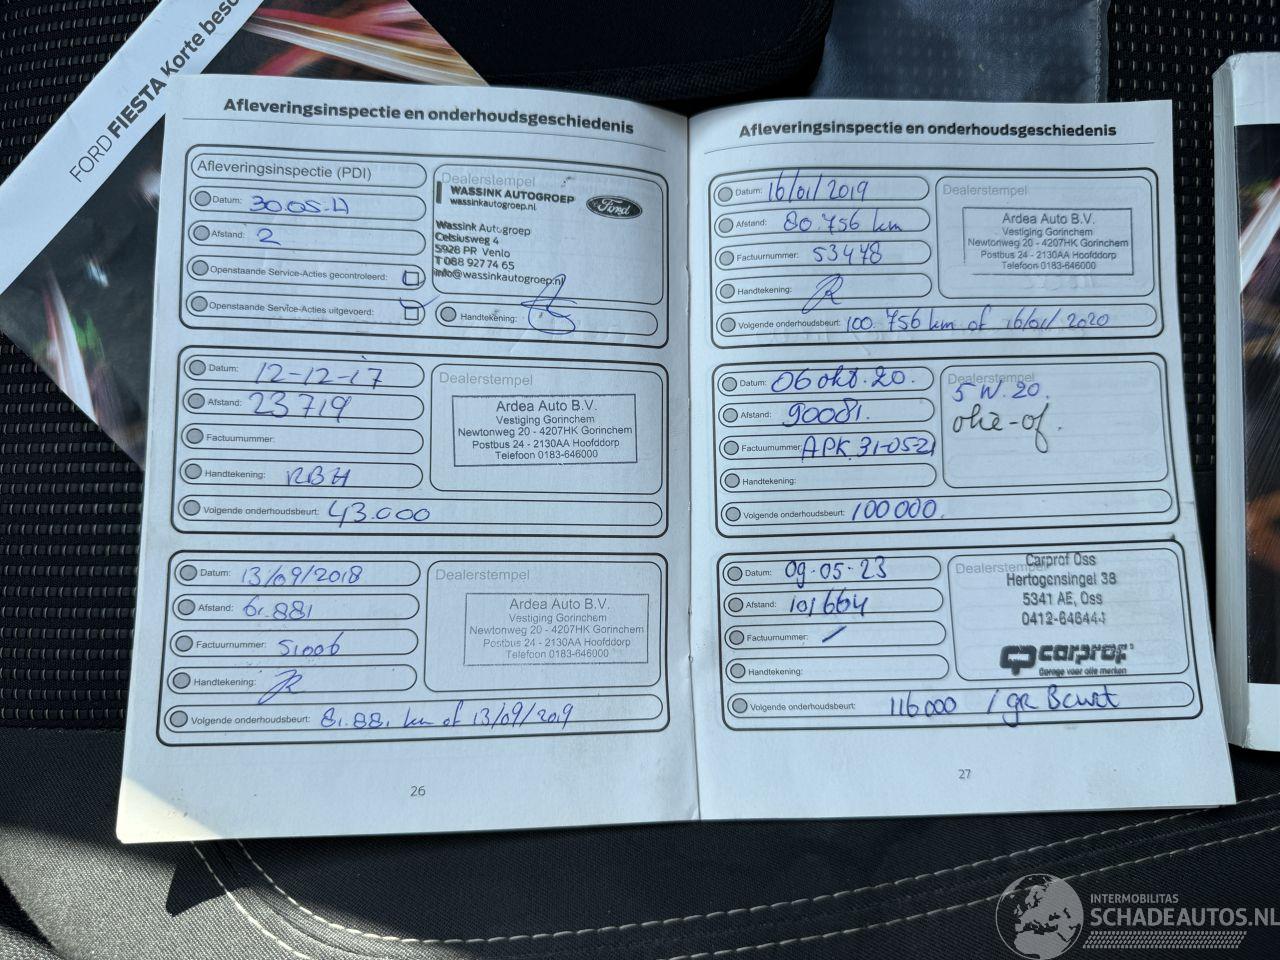 FORD FIESTA Korte
Afleveringsinspectie en onderhoudsgeschiedenis
Afleveringsinspectie (PDI)
Datum: 30.05.17
Afstand: 2
Openstaande Service-Acties gecontroleerd:
Openstaande Service-Acties uitgevoerd:
Dealerstempel
WASSINK AUTOGROEP
wassinkautogroep.nl
Ford
Wassink Autogroep
Celsiusweg 4
5928 PR Venlo
T 088 927 74 65
info@wassinkautogroep.nl
Handtekening:
Datum: 12-12-17
Afstand: 23719
Factuurnummer:
Handtekening: RBH
Volgende onderhoudsbeurt: 43.000
Dealerstempel
Ardea Auto B.V.
Vestiging Gorinchem
Newtonweg 20 - 4207HK Gorinchem
Postbus 24 - 2130AA Hoofddorp
Telefoon 0183-646000
Datum: 13/09/2018
Afstand: 61.881
Factuurnummer: 51006
Handtekening:
Volgende onderhoudsbeurt: 81.881 km of 13/09/2019
Dealerstempel
Ardea Auto B.V.
Vestiging Gorinchem
Newtonweg 20 - 4207HK Gorinchem
Postbus 24 - 2130AA Hoofddorp
Telefoon 0183-646000
26
Afleveringsinspectie en onderhoudsgeschiedenis
Datum: 16/01/2019
Afstand: 80.756 km
Factuurnummer: 53478
Handtekening:
Volgende onderhoudsbeurt: 100.756 km of 16/01/2020
Dealerstempel
Ardea Auto B.V.
Vestiging Gorinchem
Newtonweg 20 - 4207HK Gorinchem
Postbus 24 - 2130AA Hoofddorp
Telefoon 0183-646000
Datum: 06 okt. 20.
Afstand: 90081.
Factuurnummer: APK 31-05-21
Handtekening:
Volgende onderhoudsbeurt: 100000.
Dealerstempel
5 W. 20.
olie-of.
Datum: 09-05-23
Afstand: 101664
Factuurnummer: /
Handtekening:
Volgende onderhoudsbeurt: 116000 / gr Beurt
Dealerstempel
Carprof Oss
Hertogensingel 38
5341 AE, Oss
0412-646444
carprof
Garage voor alle merken
27
INTERMOBILITAS
SCHADEAUTOS.NL